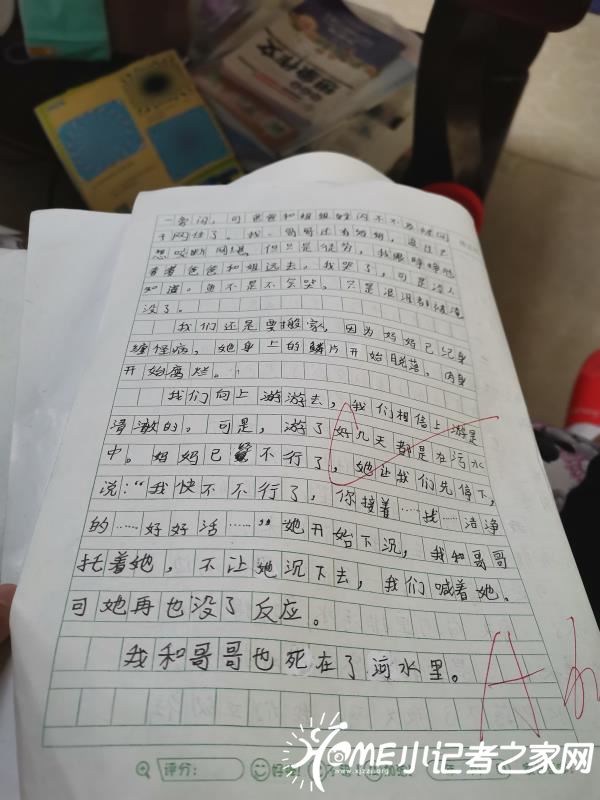 世界作文
一旁闪，可爸爸和姐姐躲闪不不及被问
于网住了。我 哥哥还有妈妈，返过去
想咬断网绳，但只是徒劳，我眼睁睁地
看着爸爸和姐远去，我哭了，可是没人
知道。鱼不是不会哭，只是眼泪都被淹
没了。
我们还是要搬家，因为妈妈已经身
缠怪病，她身上的鳞片开始脱落，肉身
开始腐烂。
我们向上游游去，我们相信上游是
清澈的。可是，游了好几天都是在污水
中。妈妈已 不行了，她让我们先停下，
说：“我快不不行了，你接着……找……洁净
的……好好活……”她开始下沉，我和哥哥
托着她，不让她沉下去，我们喊着她。
可她再也没了反应。
我和哥哥也死在了河水里。
A
评分：
HOME小记者之家网